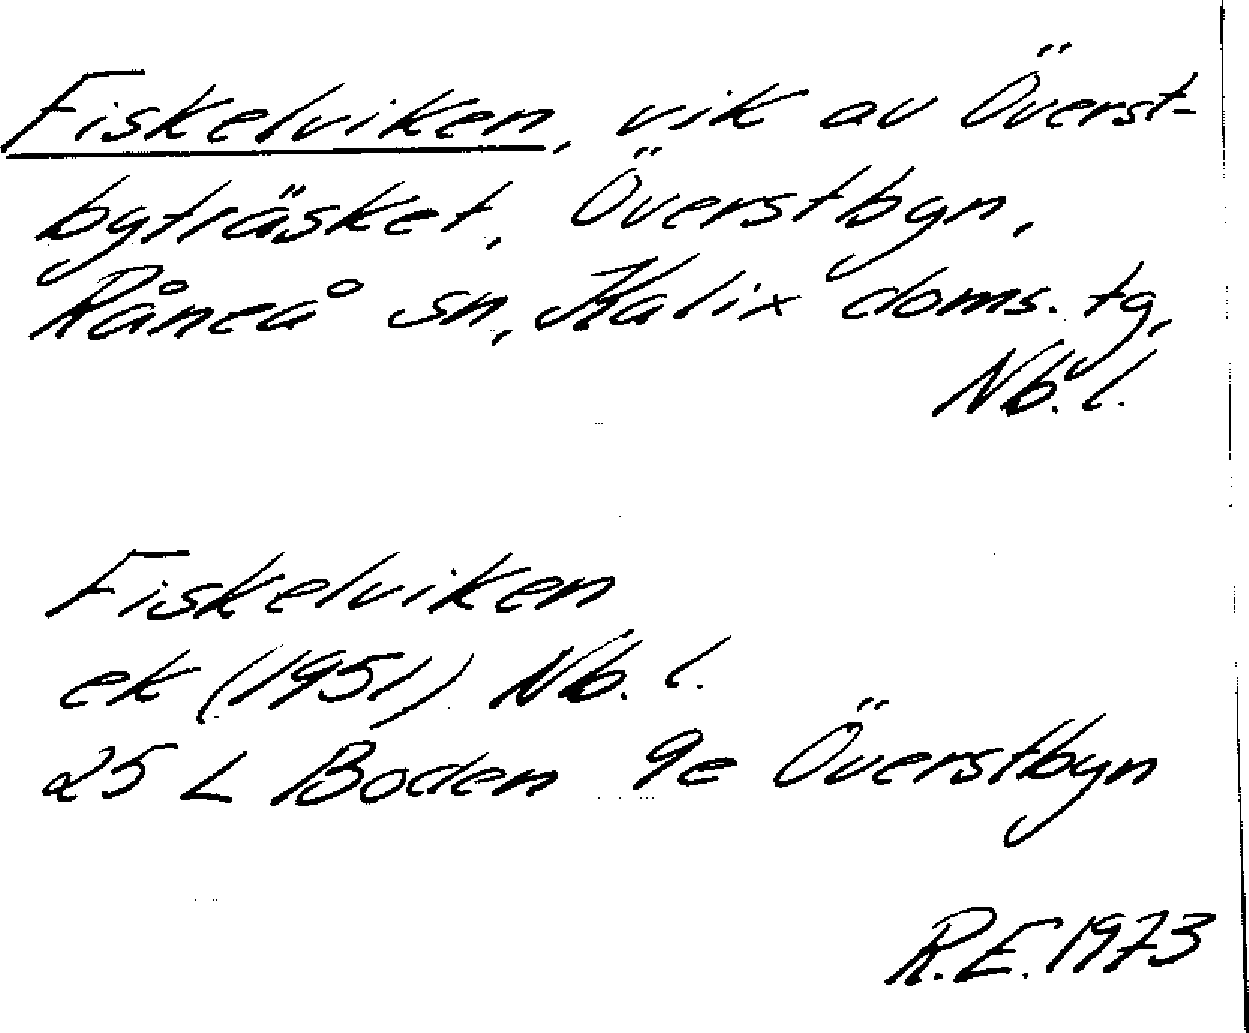 Fiskelviken, vik av Överst-
byträsket, Överstbyn,
Råneå sn, Kalix doms. tg,
Nb. l.
Fiskelviken
ek (1951) Nb. l.
25 L Boden 9e Överstbyn
R.E. 1973